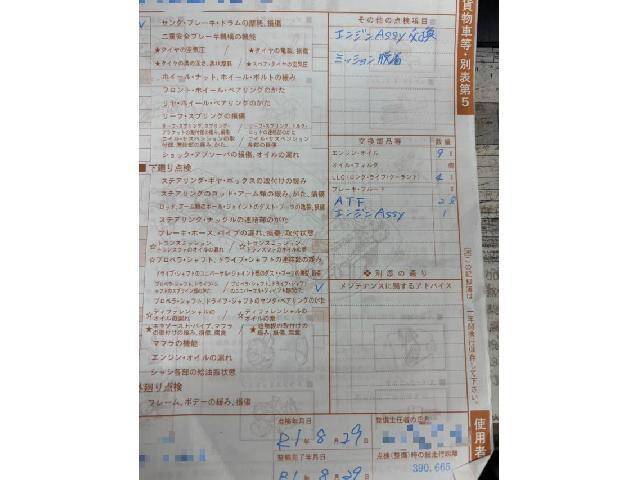 サング・ブレーキ・ドラムの摩耗、損傷
二重安全ブレーキ機構の機能
★タイヤの空気圧 ★タイヤの亀裂、損傷
★タイヤの溝の深さ、異状摩耗 ★スペア・タイヤの空気圧
ホイール・ナット、ホイール・ボルトの緩み
フロント・ホイール・ベアリングのがた
リヤ・ホイール・ベアリングのがた
リーフ・スプリングの損傷
ショック・アブソーバの損傷、オイルの漏れ
■下廻り点検
ステアリング・ギヤ・ボックスの取付けの緩み
ステアリングのロッド・アーム類の緩み、がた、損傷
ロッド、アーム類のボール・ジョイントのダスト・ブーツの亀裂、損傷
ステアリング・ナックルの連結部のがた
ブレーキ・ホース、パイプの漏れ、損傷、取付状態
☆トランスミッション、トランスファのオイルの漏れ ☆トランスミッション、トランスファのオイルの量
☆プロペラ・シャフト、ドライブ・シャフトの連結部の緩み
ドライブ・シャフトのユニバーサル・ジョイント部のダスト・ブーツの亀裂、損傷
プロペラ・シャフト、ドライブ・シャフトのセンタ・ベアリングのがた
☆ディファレンシャルのオイルの漏れ ☆ディファレンシャルのオイルの量
マフラの機能
エンジン・オイルの漏れ
シャシ各部の給油脂状態
外廻り点検
フレーム、ボデーの緩み、損傷
その他の点検項目
エンジンAssy交換
ミッション脱着
交換部品等 数量
エンジン・オイル 9 ℓ
オイル・フィルタ 個
LLC(ロング・ライフ・クーラント) 4 ℓ
ブレーキ・フルード ℓ
ATF 28
エンジンAssy 1
※別志の通り
メンテナンスに関するアドバイス
貨物車等・別表第5
(注)この記録簿は、一年間携行保存して下さい。
使用者
点検年月日
R1年8月29日
整備完了年月日
R1 8 29日
整備主任者の氏名
点検(整備)時の総走行距離
390,665